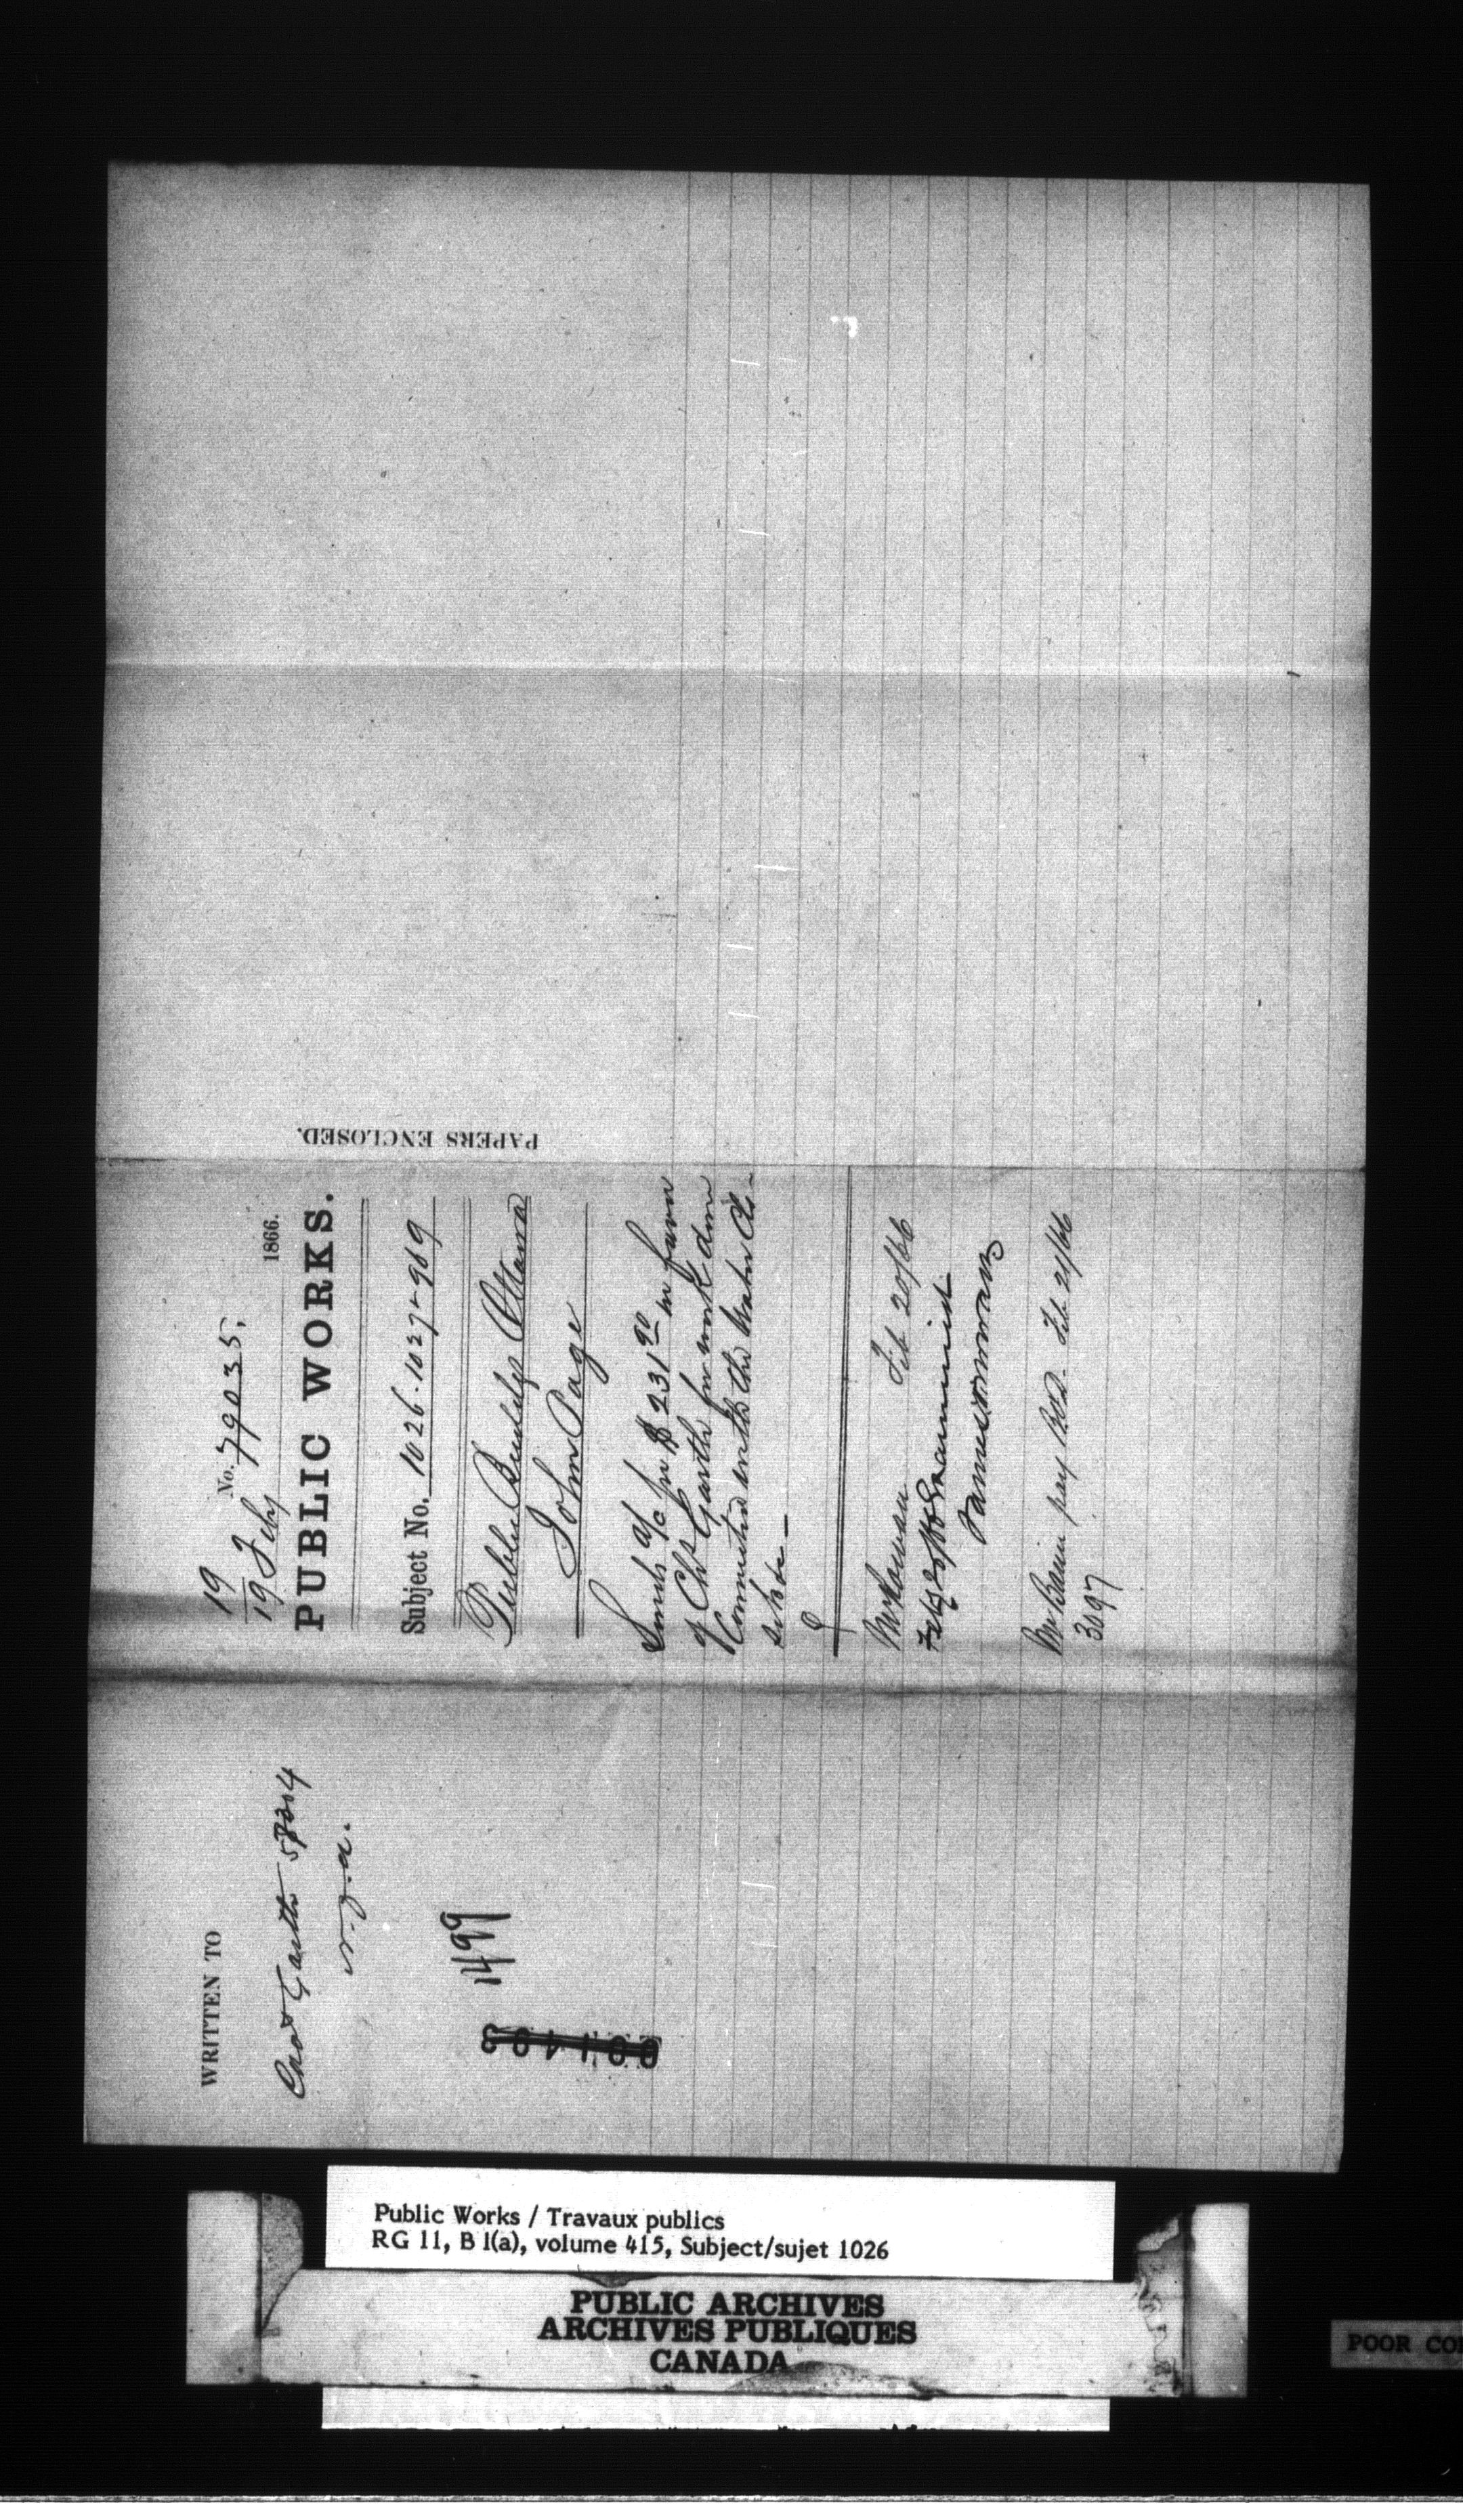 WRITTEN TO
Chas Garth 58304
1499
PAPERS ENCLOSED.
19
No. 79035.
19 Feby 1866.
PUBLIC WORKS.
Subject No. 1026-1027-969
Public Buildgs Ottawa
John Page
Sends a/c for $231 90 in favor
of Chs Garth for work done
Connected with the Water Clo-
sets &c —
Feb 20/66
Mr Baine pay Feb 21/66
3097
Public Works / Travaux publics
RG 11, B 1(a), volume 415, Subject/sujet 1026
PUBLIC ARCHIVES
ARCHIVES PUBLIQUES
CANADA
POOR CO